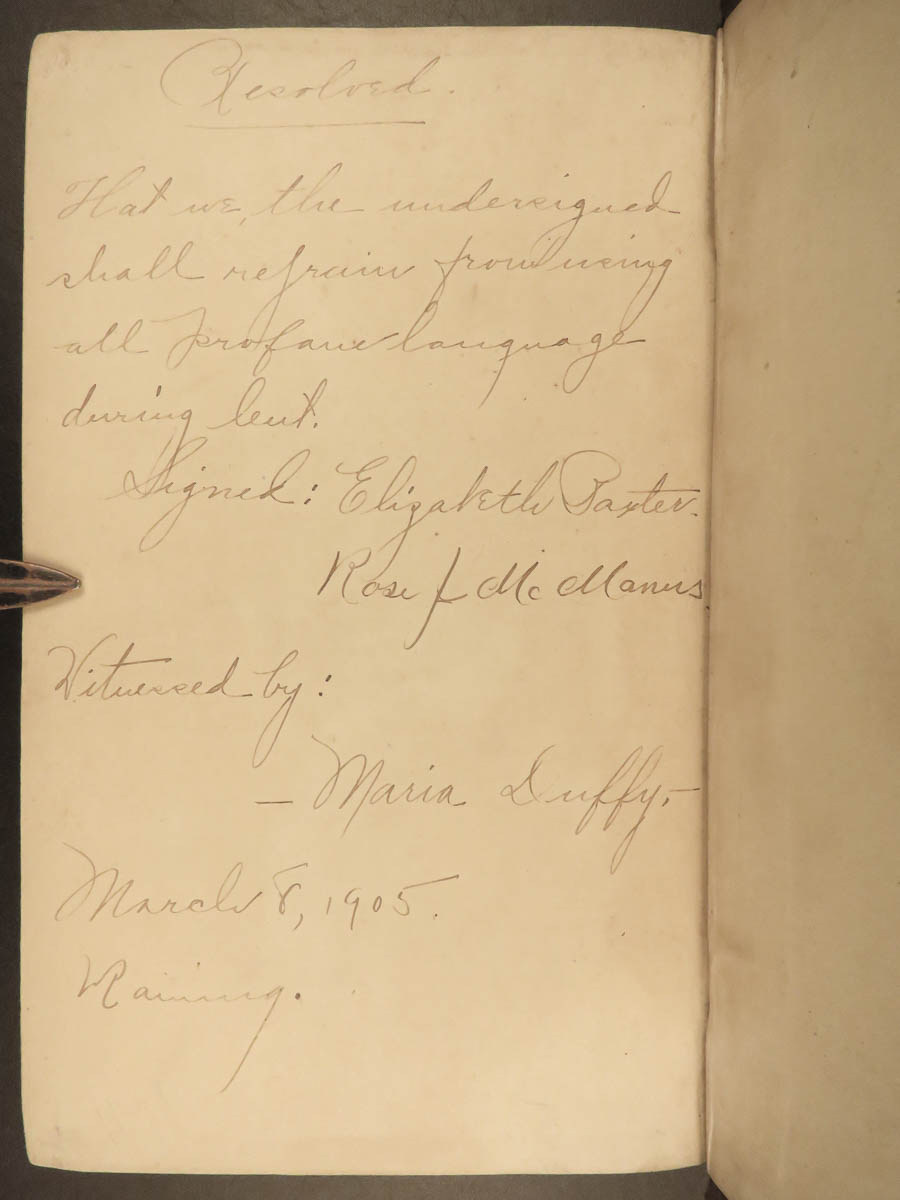 Resolved.
That we, the undersigned
shall refrain from using
all profane language
during lent.
Signed: Elizabeth Baxter.
Rose J Mc Manus
Witnessed by:
— Maria Duffy. —
March 8, 1905.
Raining.